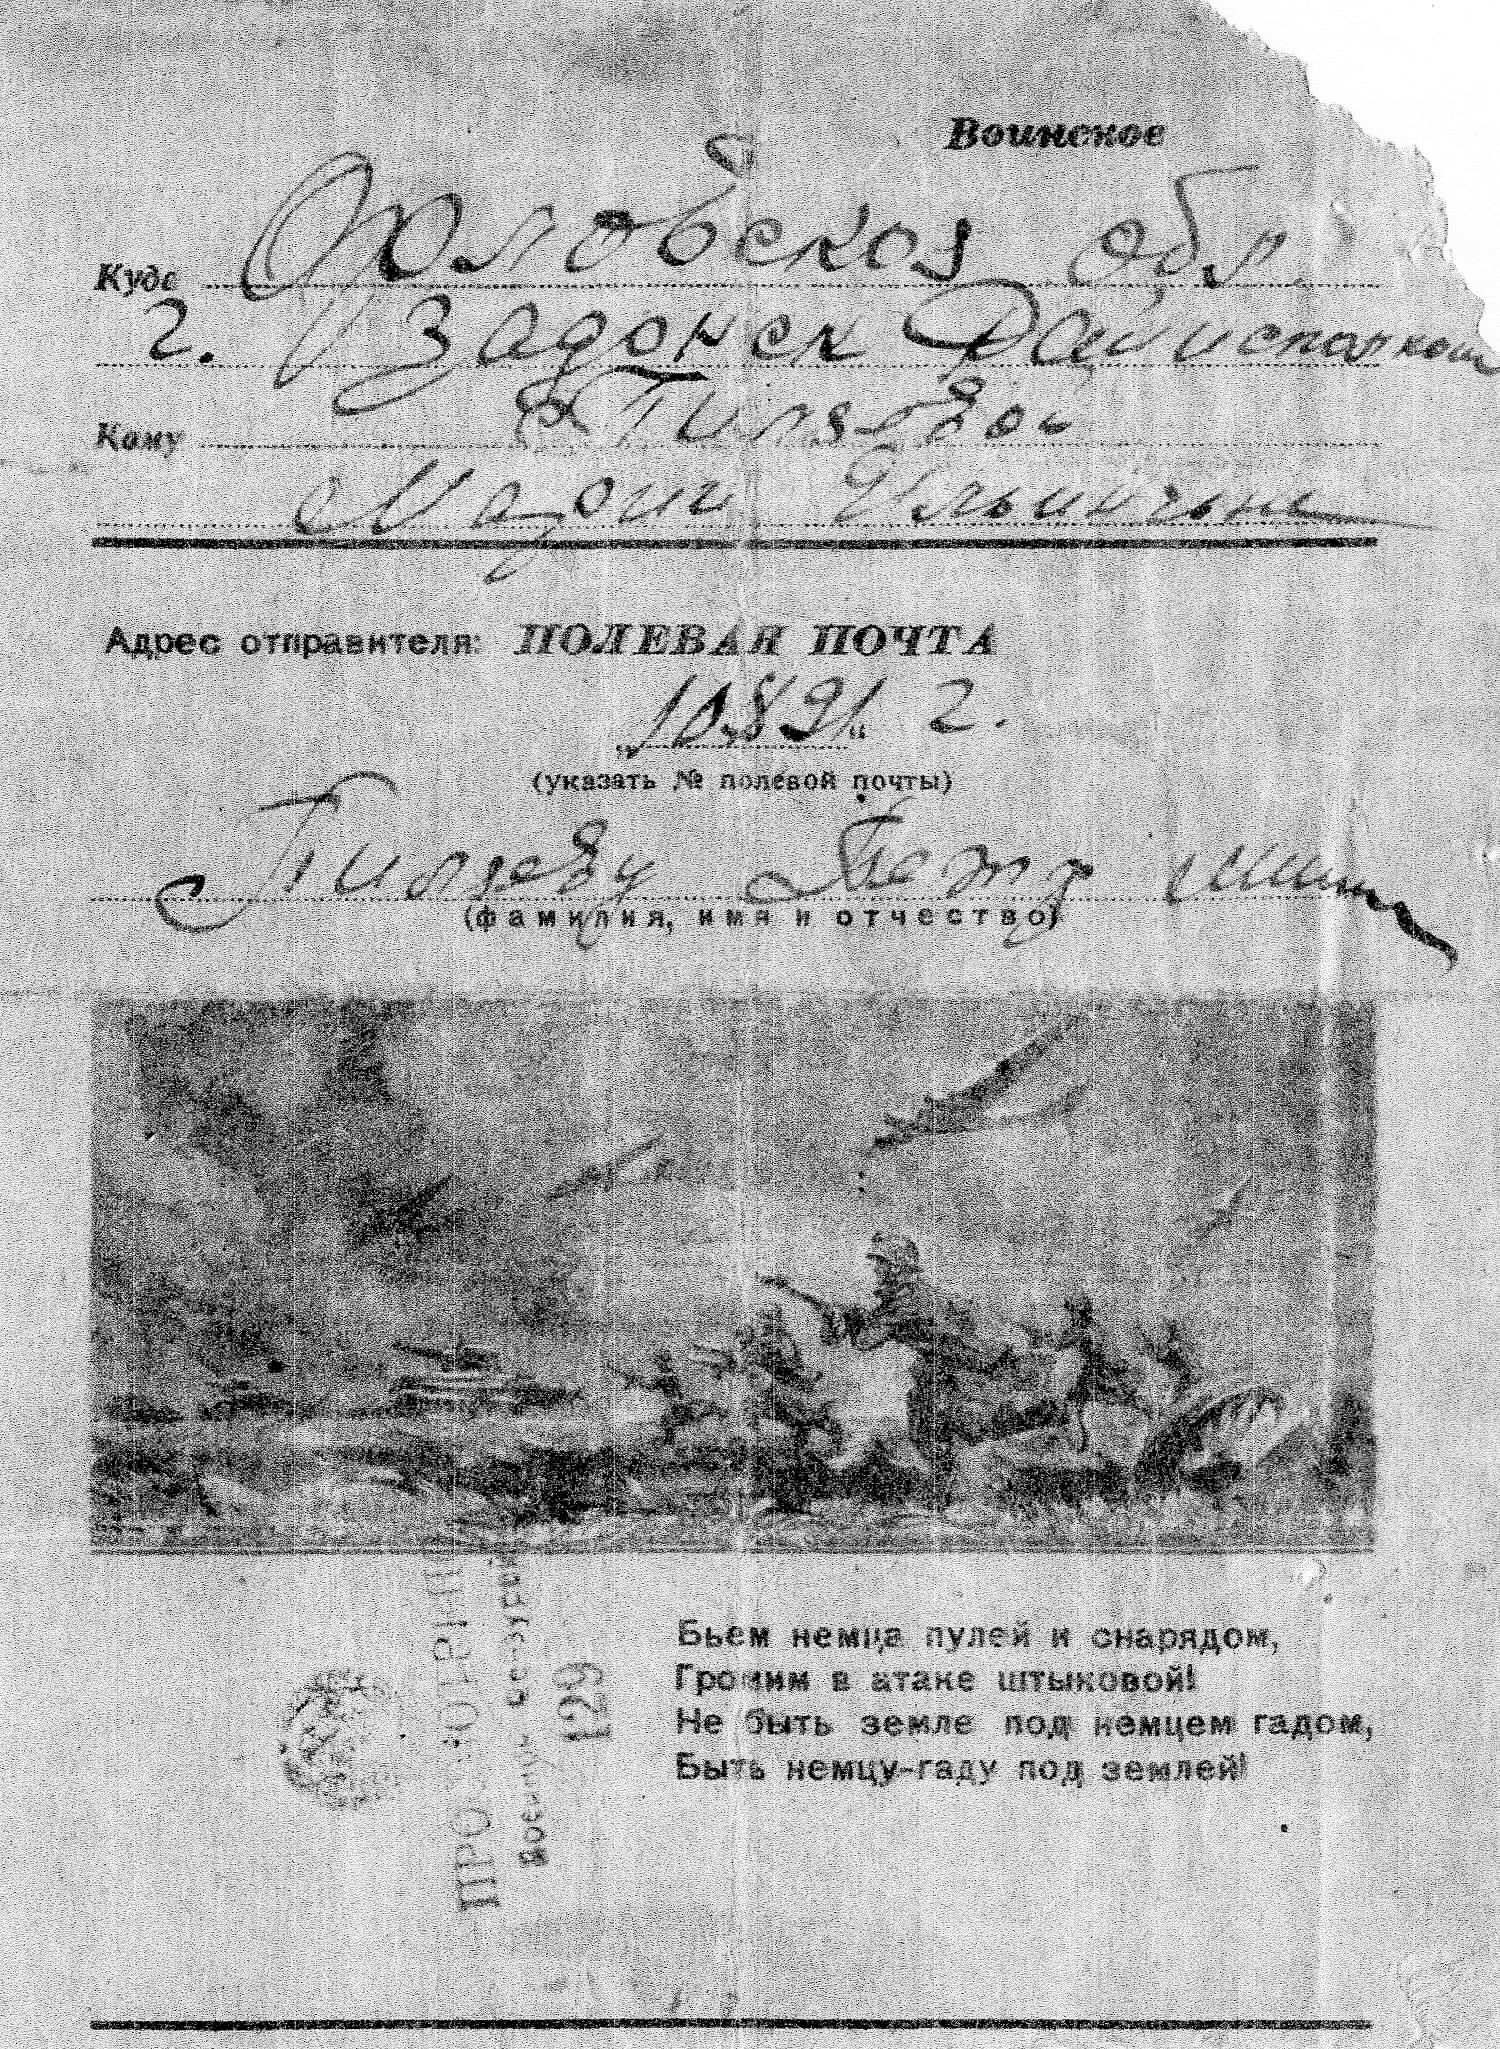 Воинское
Куда Орловская обл.
г. Задонск Райисполком
Кому Гиляеvой
Марии Ильиничне
Адрес отправителя: ПОЛЕВАЯ ПОЧТА
„10891“ г.
(указать № полевой почты)
Петр
(фамилия, имя и отчество)
Бьем немца пулей и снарядом,
Громим в атаке штыковой!
Не быть земле под немцем гадом,
Быть немцу-гаду под землей!
129